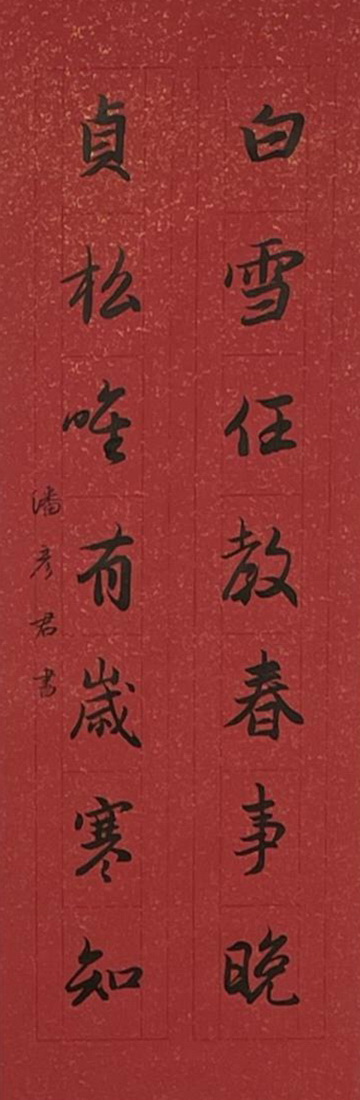 白雪任教春事晚
貞松唯有歲寒知
潘彦君書